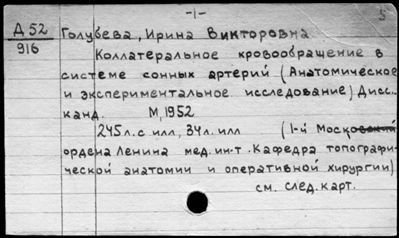 -1-
5
Д 52 Голубева, Ирина Викторовна
916
Коллатеральное кровообращение в
системе сонных артерий (Анатомическое
и экспериментальное исследование) Дисс..
канд. М, 1952
245л. с илл, 34л. илл (1-й Московский
ордена Ленина мед. ин-т. Кафедра топографи-
ческой анатомии и оперативной хирургии)
см. след. карт.